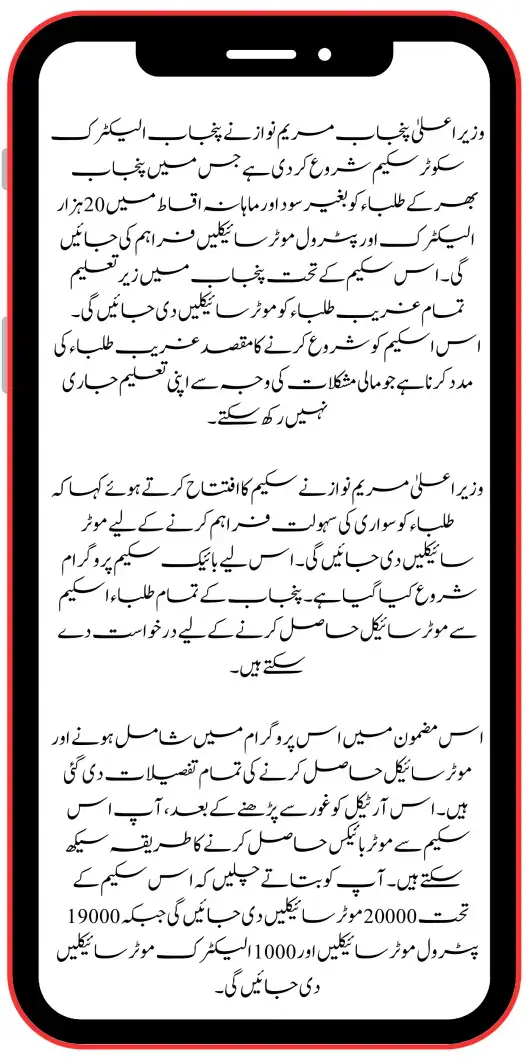 وزیر اعلیٰ پنجاب مریم نواز نے پنجاب الیکٹرک
سکوٹر سکیم شروع کر دی ہے جس میں پنجاب
بھر کے طلباء کو بغیر سود اور ماہانہ اقساط میں 20 ہزار
الیکٹرک اور پٹرول موٹر سائیکلیں فراہم کی جائیں
گی۔ اس سکیم کے تحت پنجاب میں زیر تعلیم
تمام غریب طلباء کو موٹر سائیکلیں دی جائیں گی۔
اس اسکیم کو شروع کرنے کا مقصد غریب طلباء کی
مدد کرنا ہے جو مالی مشکلات کی وجہ سے اپنی تعلیم جاری
نہیں رکھ سکتے۔
وزیر اعلیٰ مریم نواز نے سکیم کا افتتاح کرتے ہوئے کہا کہ
طلباء کو سواری کی سہولت فراہم کرنے کے لیے موٹر
سائیکلیں دی جائیں گی۔ اس لیے بائیک سکیم پروگرام
شروع کیا گیا ہے۔ پنجاب کے تمام طلباء اسکیم
سے موٹر سائیکل حاصل کرنے کے لیے درخواست دے
سکتے ہیں۔
اس مضمون میں اس پروگرام میں شامل ہونے اور
موٹر سائیکل حاصل کرنے کی تمام تفصیلات دی گئی
ہیں۔ اس آرٹیکل کو غور سے پڑھنے کے بعد، آپ اس
سکیم سے موٹر بائیکس حاصل کرنے کا طریقہ سیکھ
سکتے ہیں۔ آپ کو بتاتے چلیں کہ اس سکیم کے
تحت 20000 موٹر سائیکلیں دی جائیں گی جبکہ 19000
پٹرول موٹر سائیکلیں اور 1000 الیکٹرک موٹر سائیکلیں
دی جائیں گی۔